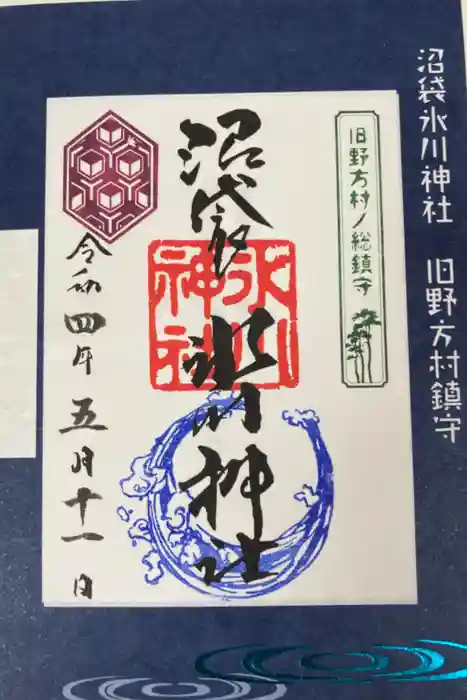 沼袋氷川神社 旧野方村鎮守
旧野方村ノ総鎮守
沼袋氷川神社
氷川神社
令和四年五月十一日